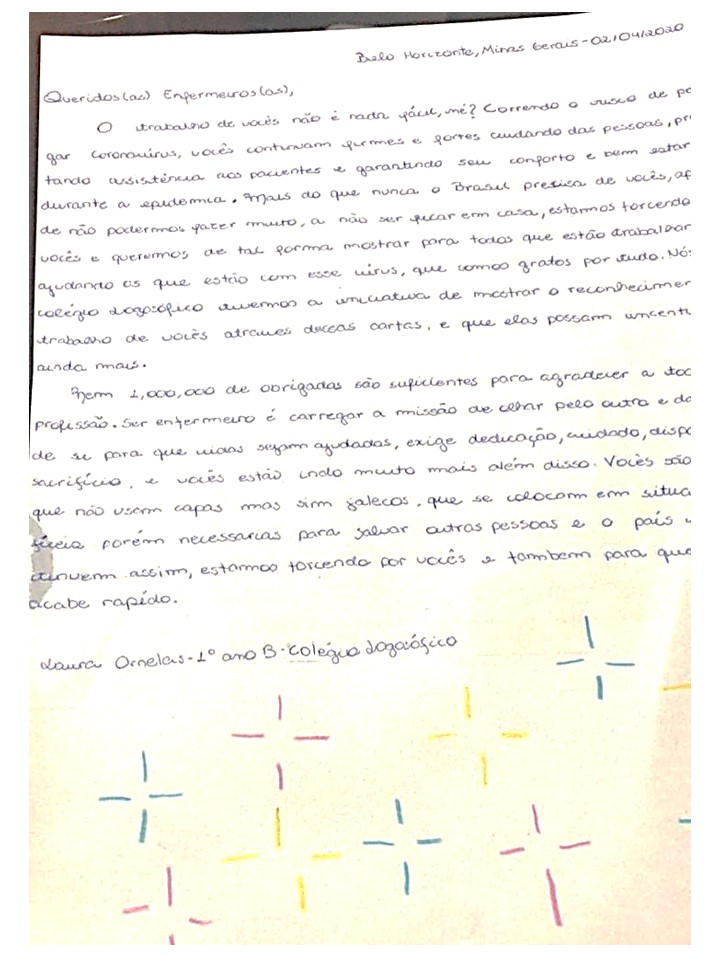 Belo Horizonte, Minas Gerais - 02/04/2020
Queridos(as) Enfermeiros(as),
O trabalho de vocês não é nada fácil, né? Correndo o risco de pe
gar coronavírus, vocês continuam firmes e fortes cuidando das pessoas, pr
tando assistência aos pacientes e garantindo seu conforto e bem estar
durante a epidemia. Mais do que nunca o Brasil precisa de vocês, ap
de não podermos fazer muito, a não ser ficar em casa, estamos torcendo
vocês e queremos de tal forma mostrar para todos que estão trabalhar
ajudando os que estão com esse vírus, que somos gratos por tudo. Nós
colégio Logosófico tivemos a iniciativa de mostrar o reconhecimen
trabalho de vocês atraves dessas cartas, e que elas possam incenti
ainda mais.
Nem 1,000,000 de obrigadas são suficientes para agradecer a toc
profissão. Ser enfermeiro é carregar a missão de olhar pelo outro e do
de si para que vidas sejam ajudadas, exige dedicação, cuidado, dispo
sacrifício, e vocês estão indo muito mais além disso. Vocês são
que não usam capas mas sim jalecos, que se colocam em situa
fíceis porém necessarias para salvar outras pessoas e o país
tinuem assim, estamos torcendo por vocês e tambem para que
acabe rapído.
Laura Ornelas - 1º ano B - Colégio Logosófico